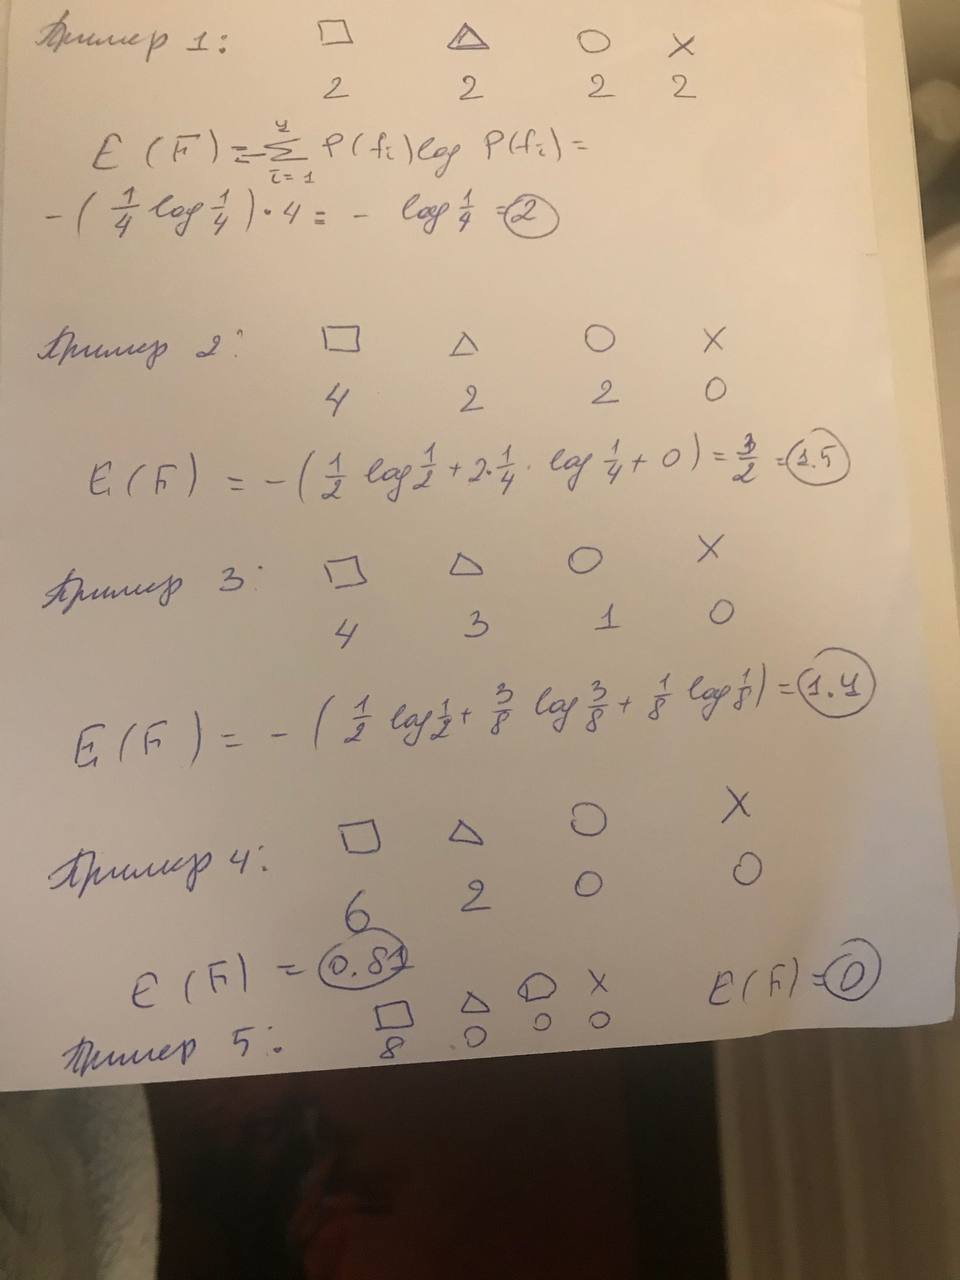 Пример 1: □ △ ○ ×
2 2 2 2
E(F) = -∑ P(fi) log P(fi) =
4
i=1
-(1/4 log 1/4) · 4 = - log 1/4 = 2
Пример 2: □ △ ○ ×
4 2 2 0
E(F) = -(1/2 log 1/2 + 2·1/4 · log 1/4 + 0) = 3/2 = 1.5
Пример 3: □ △ ○ ×
4 3 1 0
E(F) = -(1/2 log 1/2 + 3/8 log 3/8 + 1/8 log 1/8) = 1.4
Пример 4: □ △ ○ ×
6 2 0 0
E(F) = 0.81
Пример 5: □ △ ○ × E(F) = 0
8 0 0 0